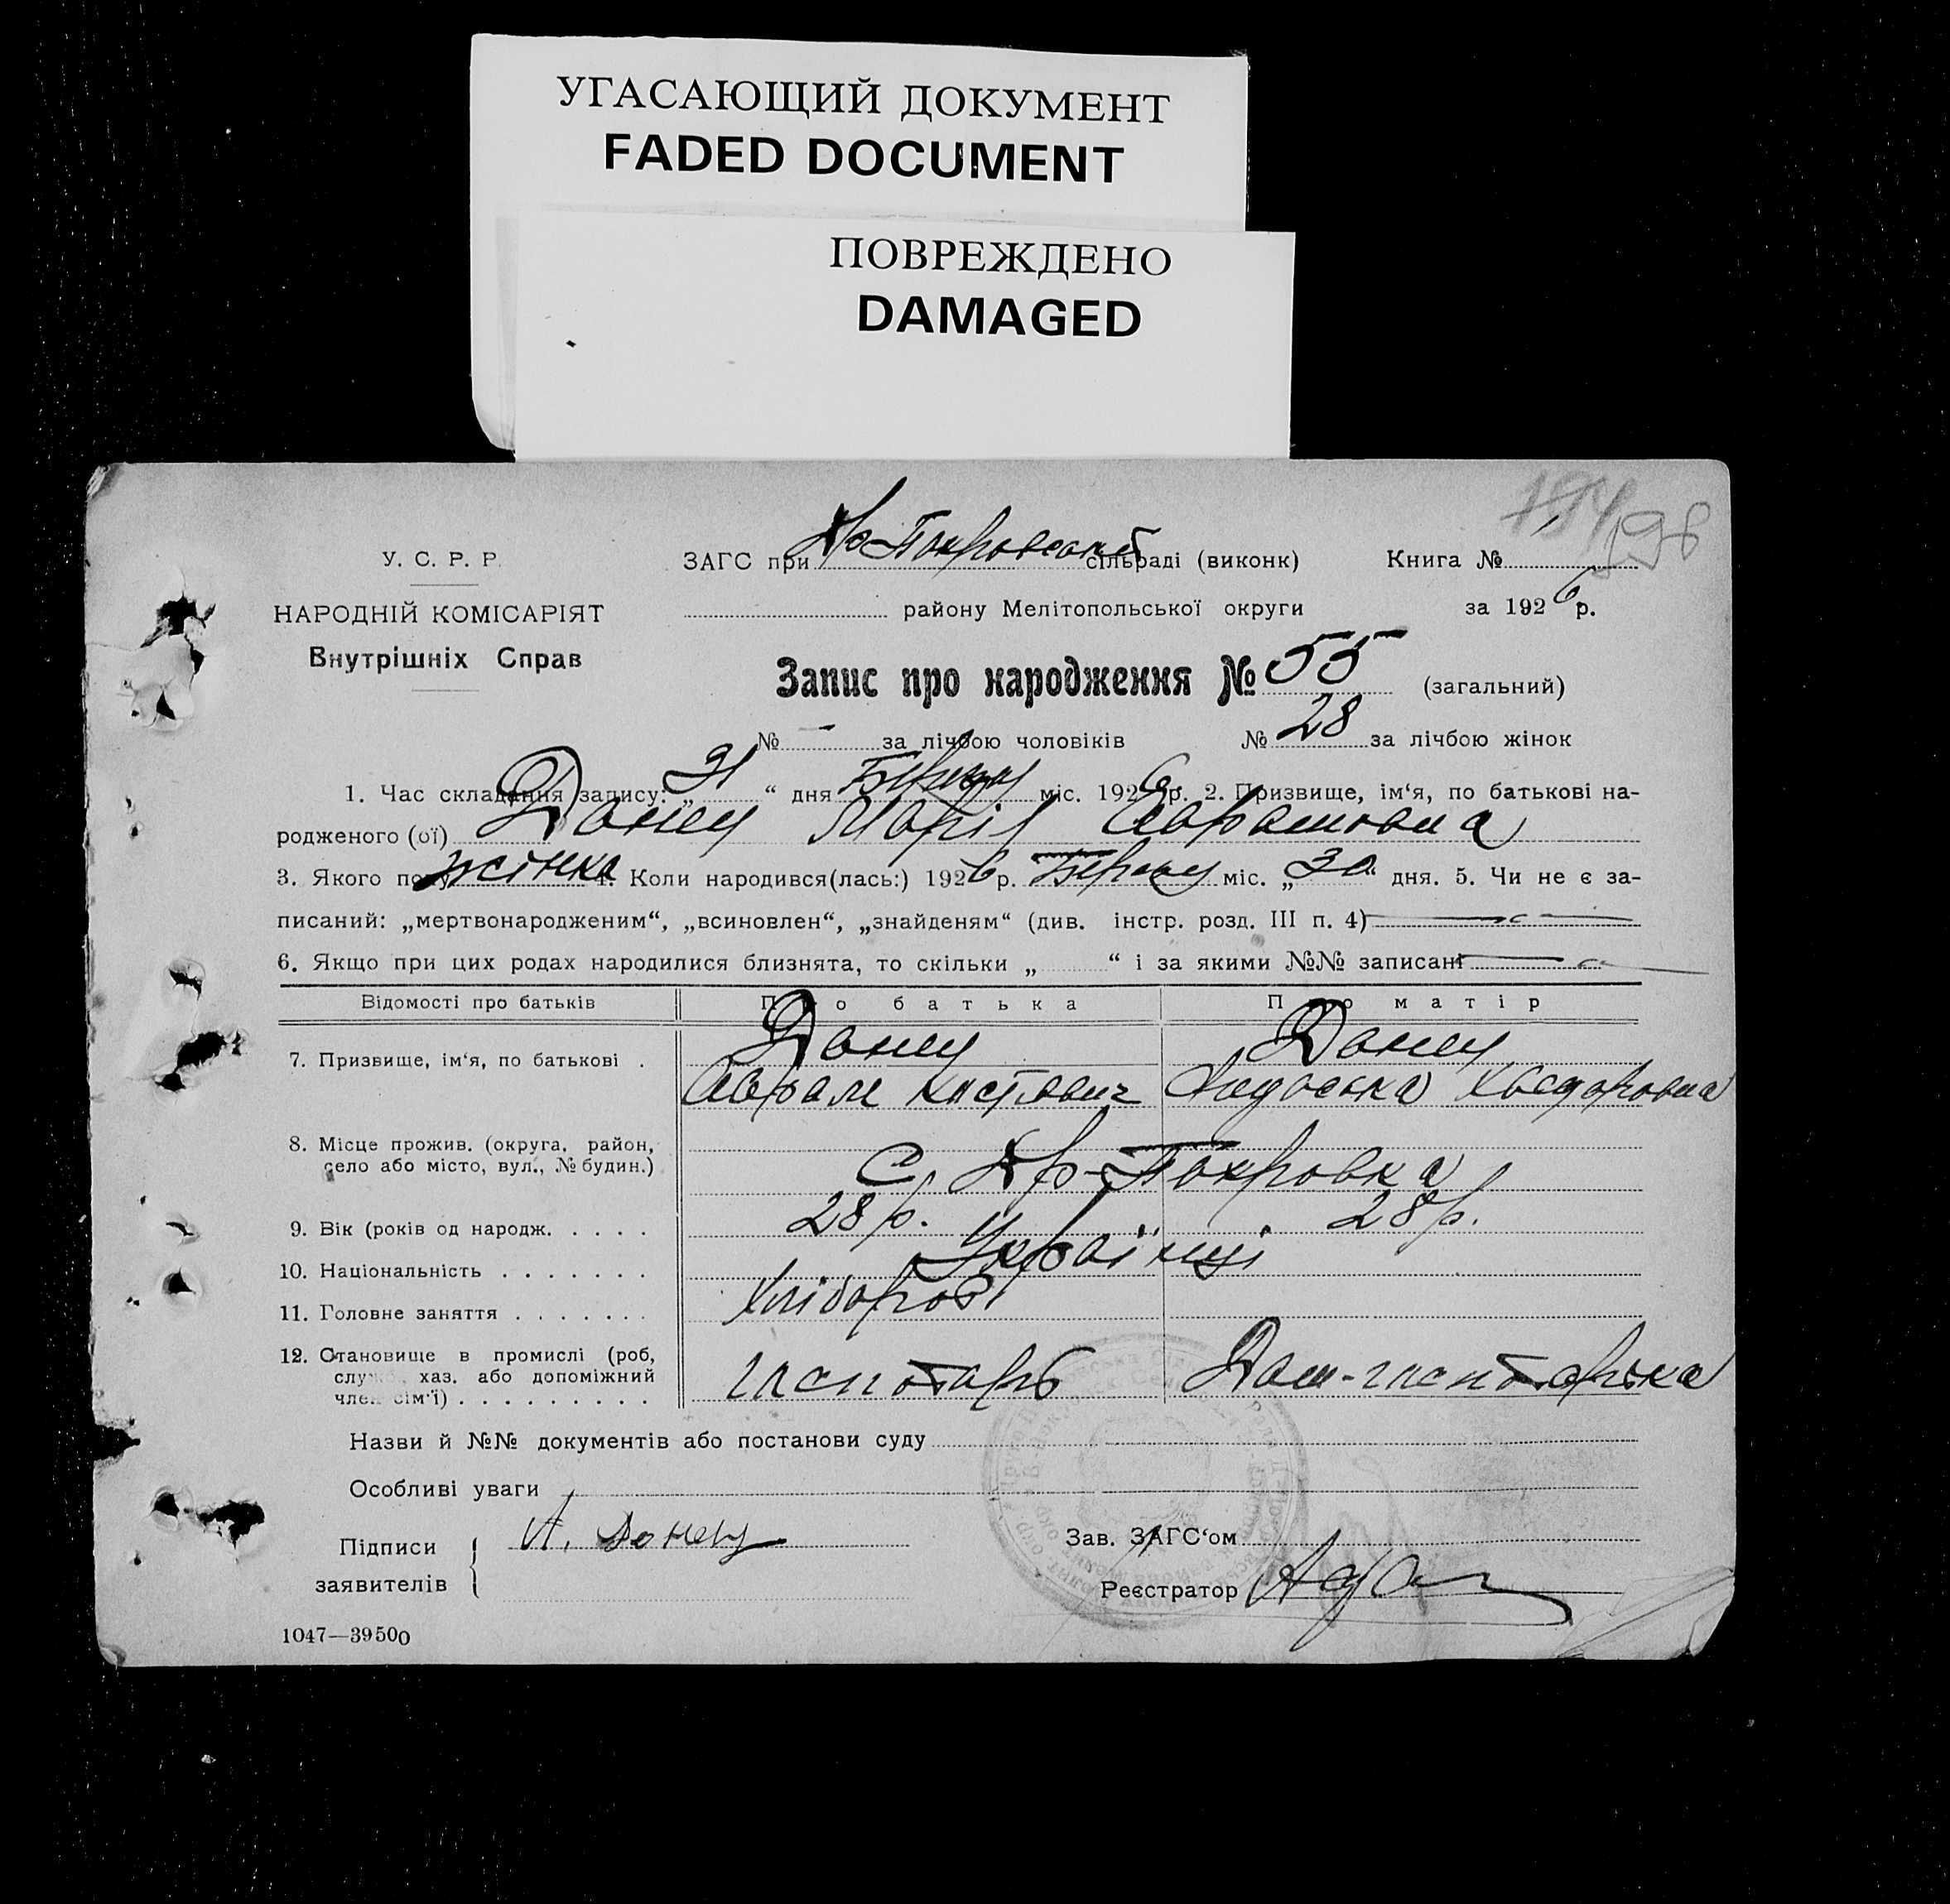 УГАСАЮЩИЙ ДОКУМЕНТ
FADED DOCUMENT
ПОВРЕЖДЕНО
DAMAGED
194 198
У. С. Р. Р.
НАРОДНІЙ КОМІСАРІЯТ
Внутрішніх Справ
ЗАГС при сільраді (виконк) Книга №
району Мелітопольської округи за 1926 р.
Запис про народження № 55 (загальний)
№ - за лічбою чоловіків № 28 за лічбою жінок
1. Час складання запису: „31“ дня Березня міс. 1926 р. 2. Призвище, ім‘я, по батькові на-
родженого (ої) Донец Марія Аврамовна
3. Якого полу жінка 4. Коли народився(лась:) 1926 р. Березня міс. „30“ дня. 5. Чи не є за-
писаний: „мертвонародженим“, „всиновлен“, „знайденям“ (див. інстр. розд. III п. 4)
6. Якщо при цих родах народилися близнята, то скільки „ “ і за якими №№ записані
Відомості про батьків Про батька Про матір
7. Призвище, ім‘я, по батькові . Донец Донец
Аврам Федоровна
8. Місце прожив. (округа, район,
село або місто, вул., № будин.) С. Покровка
9. Вік (років од народж. . . . . 28 р. 28 р.
10. Національність . . . . . . . Українці
11. Головне заняття . . . . . . . Хлібороб
12. Становище в промислі (роб,
служ. хаз. або допоміжний
член сім‘ї) . . . . . . . . . господарь Дом-господарька
Назви й №№ документів або постанови суду
Особливі уваги
Підписи
заявителів А. Донец
Зав. ЗАГС‘ом
Реєстратор
1047—39500